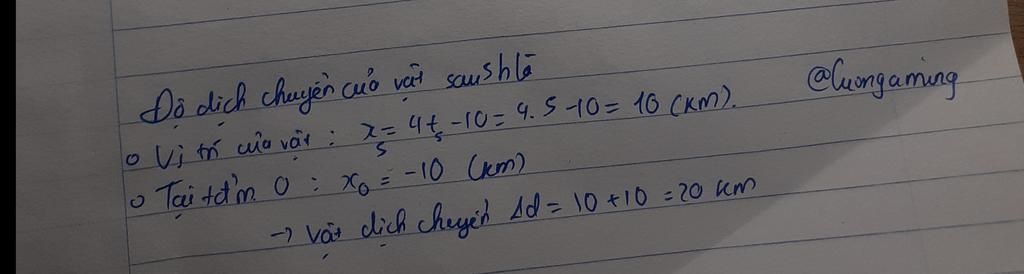 Độ dịch chuyển của vật sau 5h là
@Cuongaming
o Vị trí của vật : x₅ = 4t₅ - 10 = 4.5 - 10 = 10 (km).
o Tại tđ'm 0 : x₀ = -10 (km)
→ Vật dịch chuyển Δd = 10 + 10 = 20 km